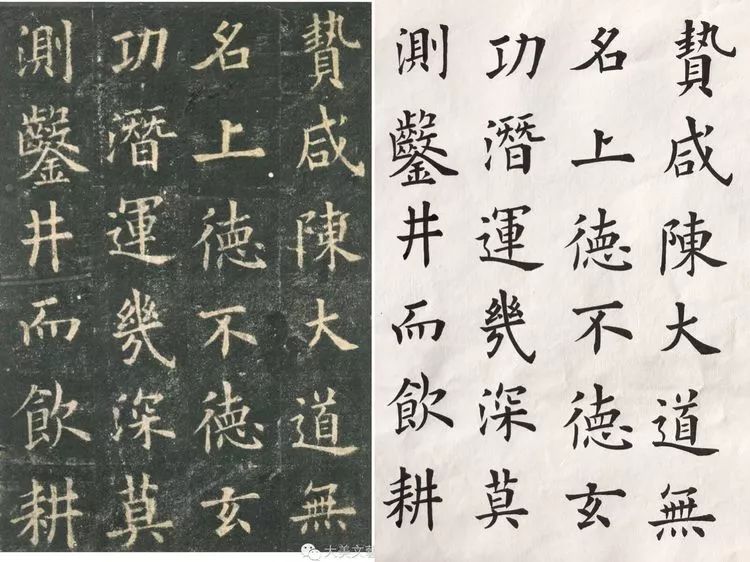 贄咸陳大道無
名上德不德玄
功潛運幾深莫
測鑿井而飲耕
贄咸陳大道無
名上德不德玄
功潛運幾深莫
測鑿井而飲耕
大美文藝